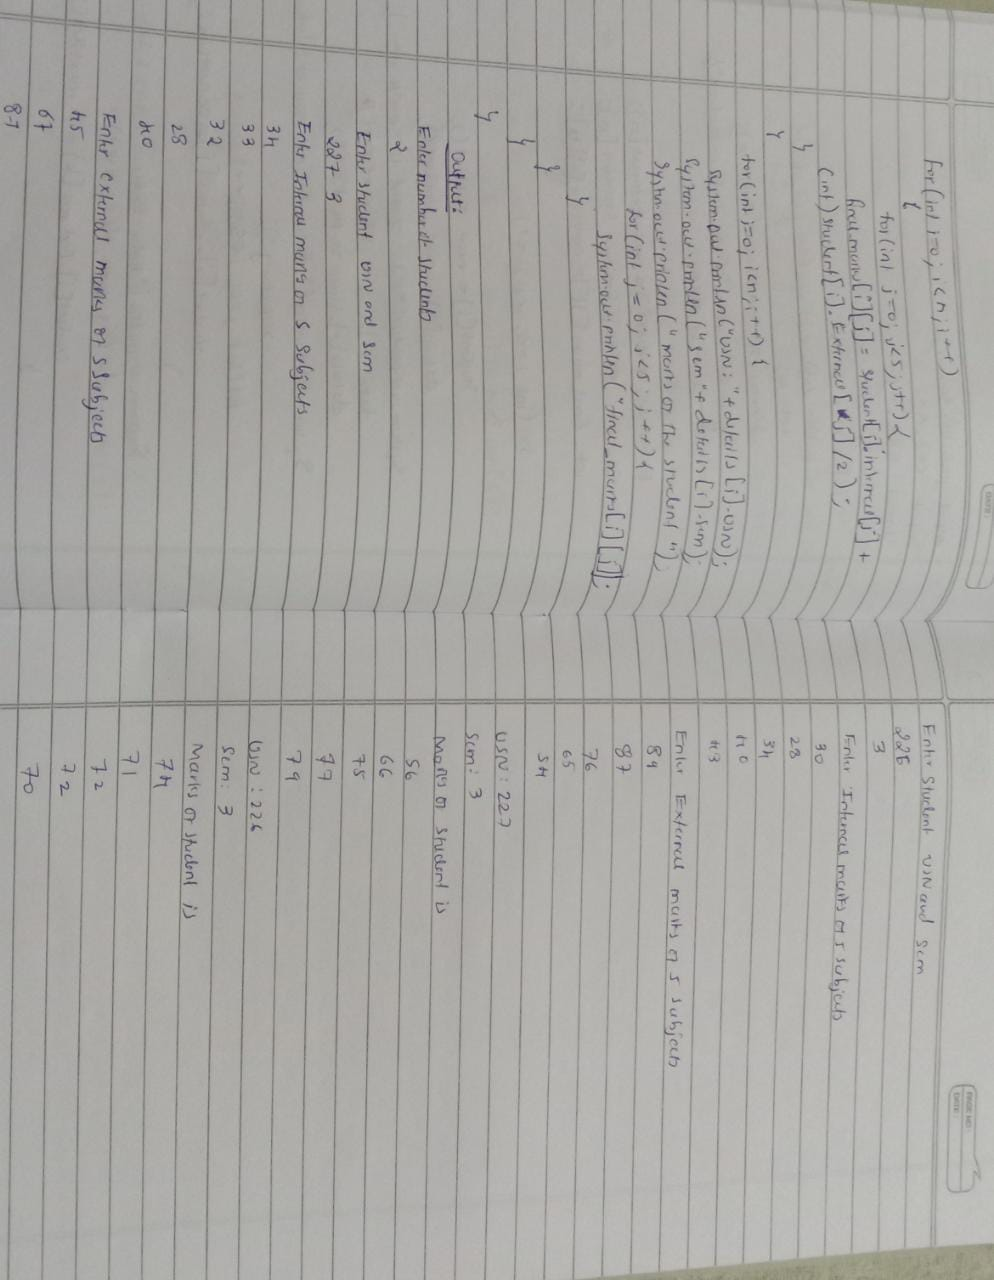 DATE:
for(int i=0; i<n; i++)
{
for(int j=0; j<5; j++) {
final_marks[i][j] = student[i].internal[j] +
(int) student[i].External[j] / 2);
}
}
for(int i=0; i<n; i++) {
System.out.println("USN: "+details[i].USN);
System.out.println("sem"+details[i].sem);
System.out.println("marks of the student");
for(int j=0; j<5; j++) {
System.out.println("final_marks[i][j]);
}
}
}
}
Output:
Enter number of students
2
Enter student USN and sem
227 3
Enter Internal marks of 5 subjects
34
33
32
28
40
Enter external marks of 5 subjects
45
67
87
PAGE NO:
DATE:
Enter Student USN and sem
226
3
Enter Internal marks of 5 subjects
30
28
34
40
43
Enter External marks of 5 subjects
89
87
76
65
54
USN: 227
Sem: 3
Marks of student is
56
66
75
77
79
USN: 226
Sem: 3
Marks of student is
74
71
72
72
70